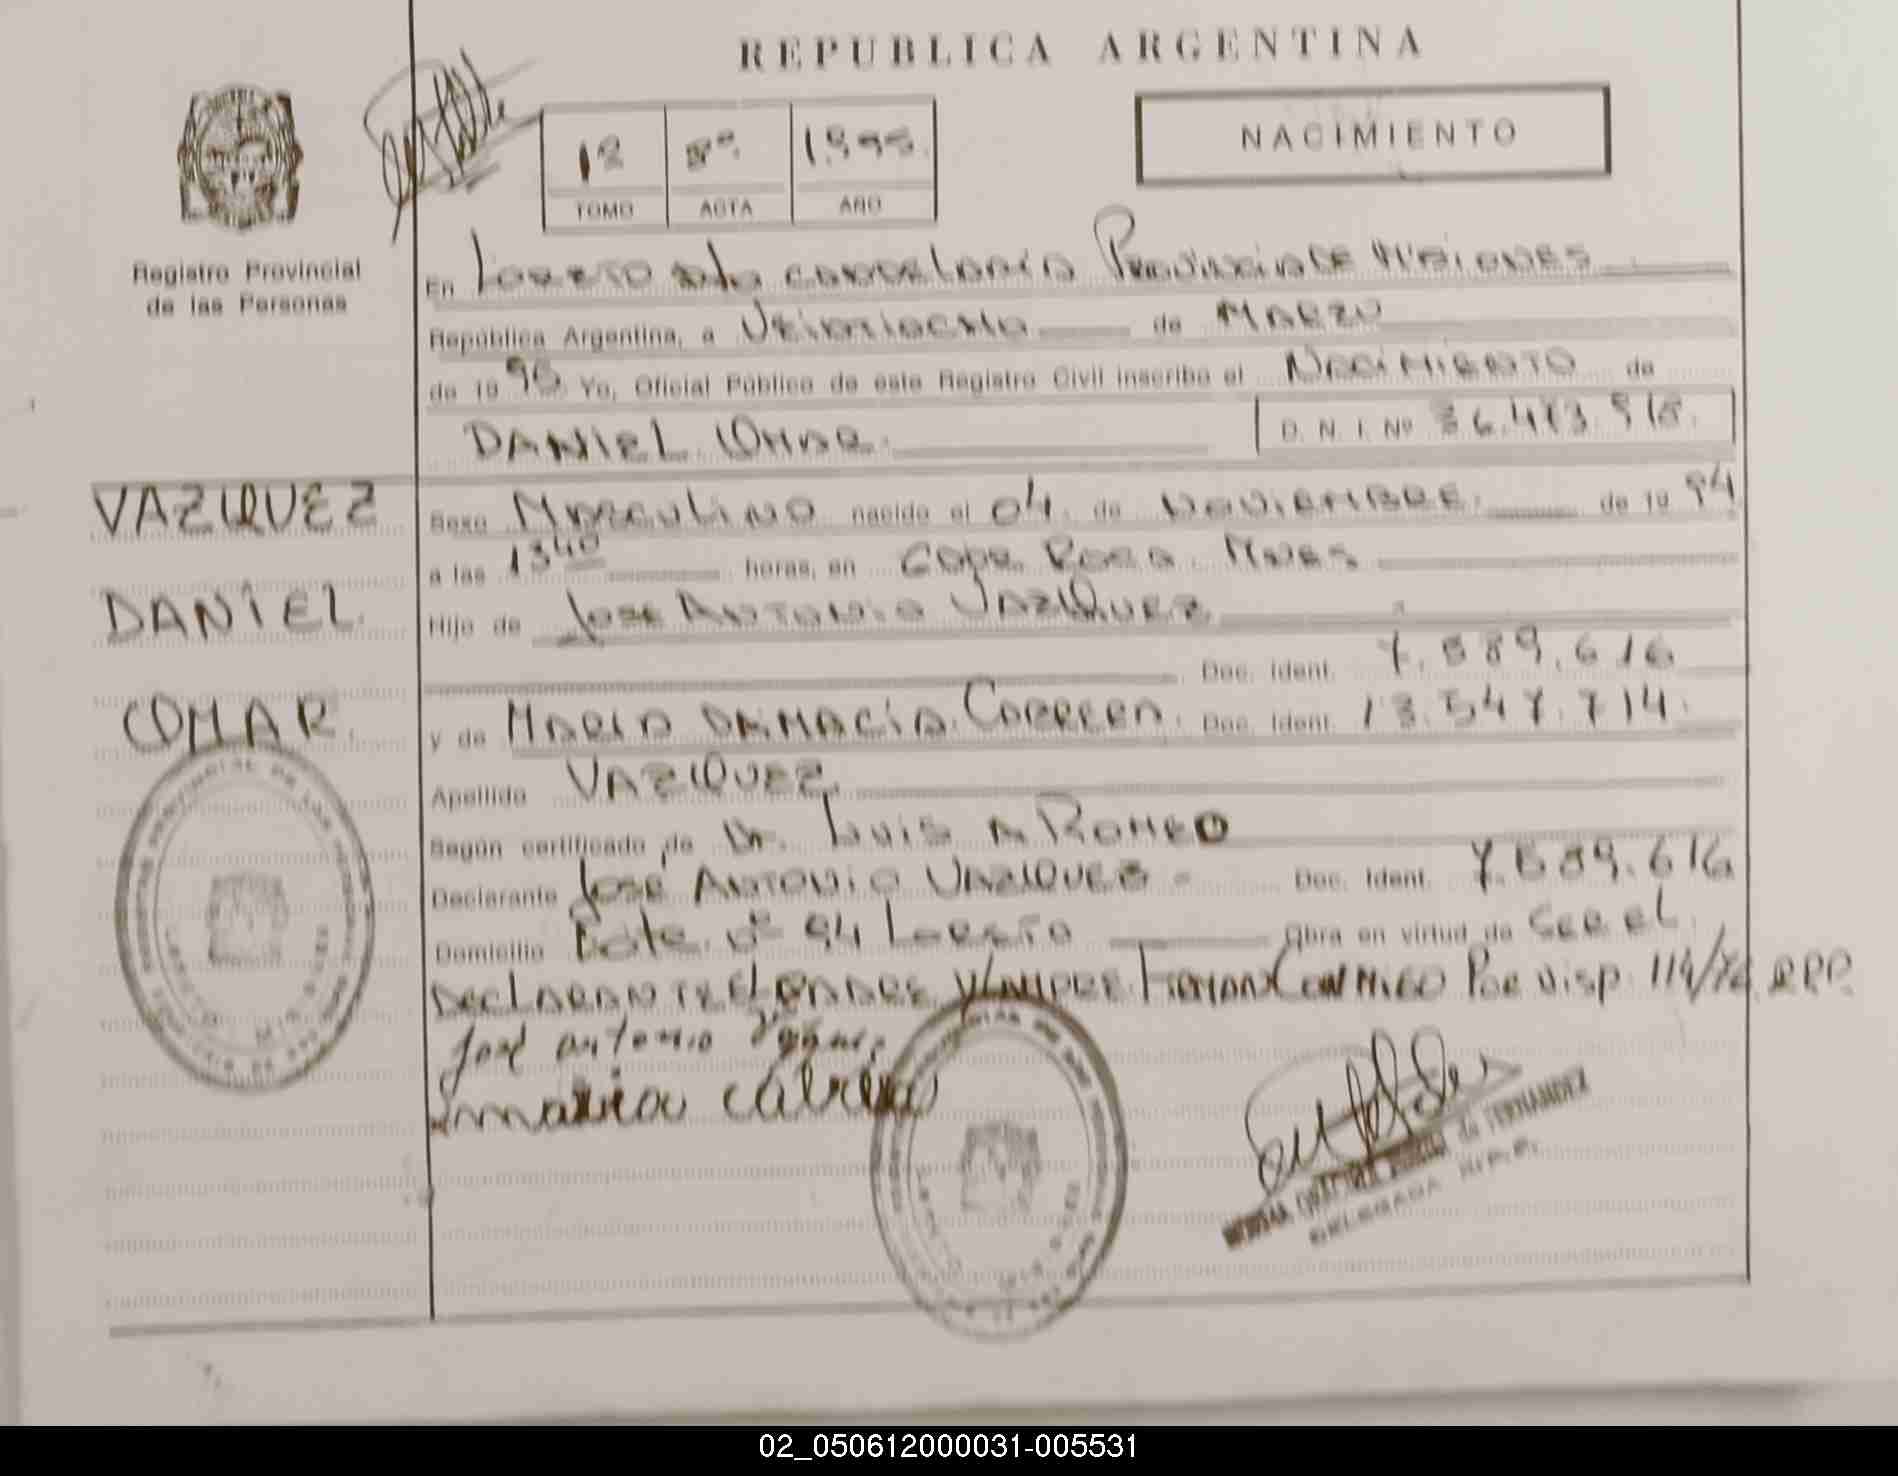 REPUBLICA ARGENTINA
NACIMIENTO
TOMO ACTA AÑO
Registro Provincial
de las Personas
En Loreto Dpto Candelaria Provincia de Misiones
República Argentina, a Veintiocho de Marzo
de 19 Yo, Oficial Público de este Registro Civil inscribo el Nacimiento de
DANIEL OMAR. D. N. I. Nº
VAZQUEZ
DANIEL
OMAR
Sexo Masculino nacido el 04 de Noviembre de 19 94
a las 13 40 horas, en
Hijo de José Antonio Vazquez
Doc. Ident. 7.589.616
y de Maria Damacia Cabrera Doc. Ident. 13.547.714.
Apellido VAZQUEZ
Según certificado de Dr. Luis A Romeo
Declarante José Antonio Vazquez - Doc. Ident. 7.589.616
Domicilio Lote nº 94 Loreto Obra en virtud de ser el
declarante El padre y la madre Firman Conmigo Por Disp. 114/76 RPP.
José antonio
maria cabrera
de FERNANDEZ
DELEGADA R.P.P.
02_050612000031-005531